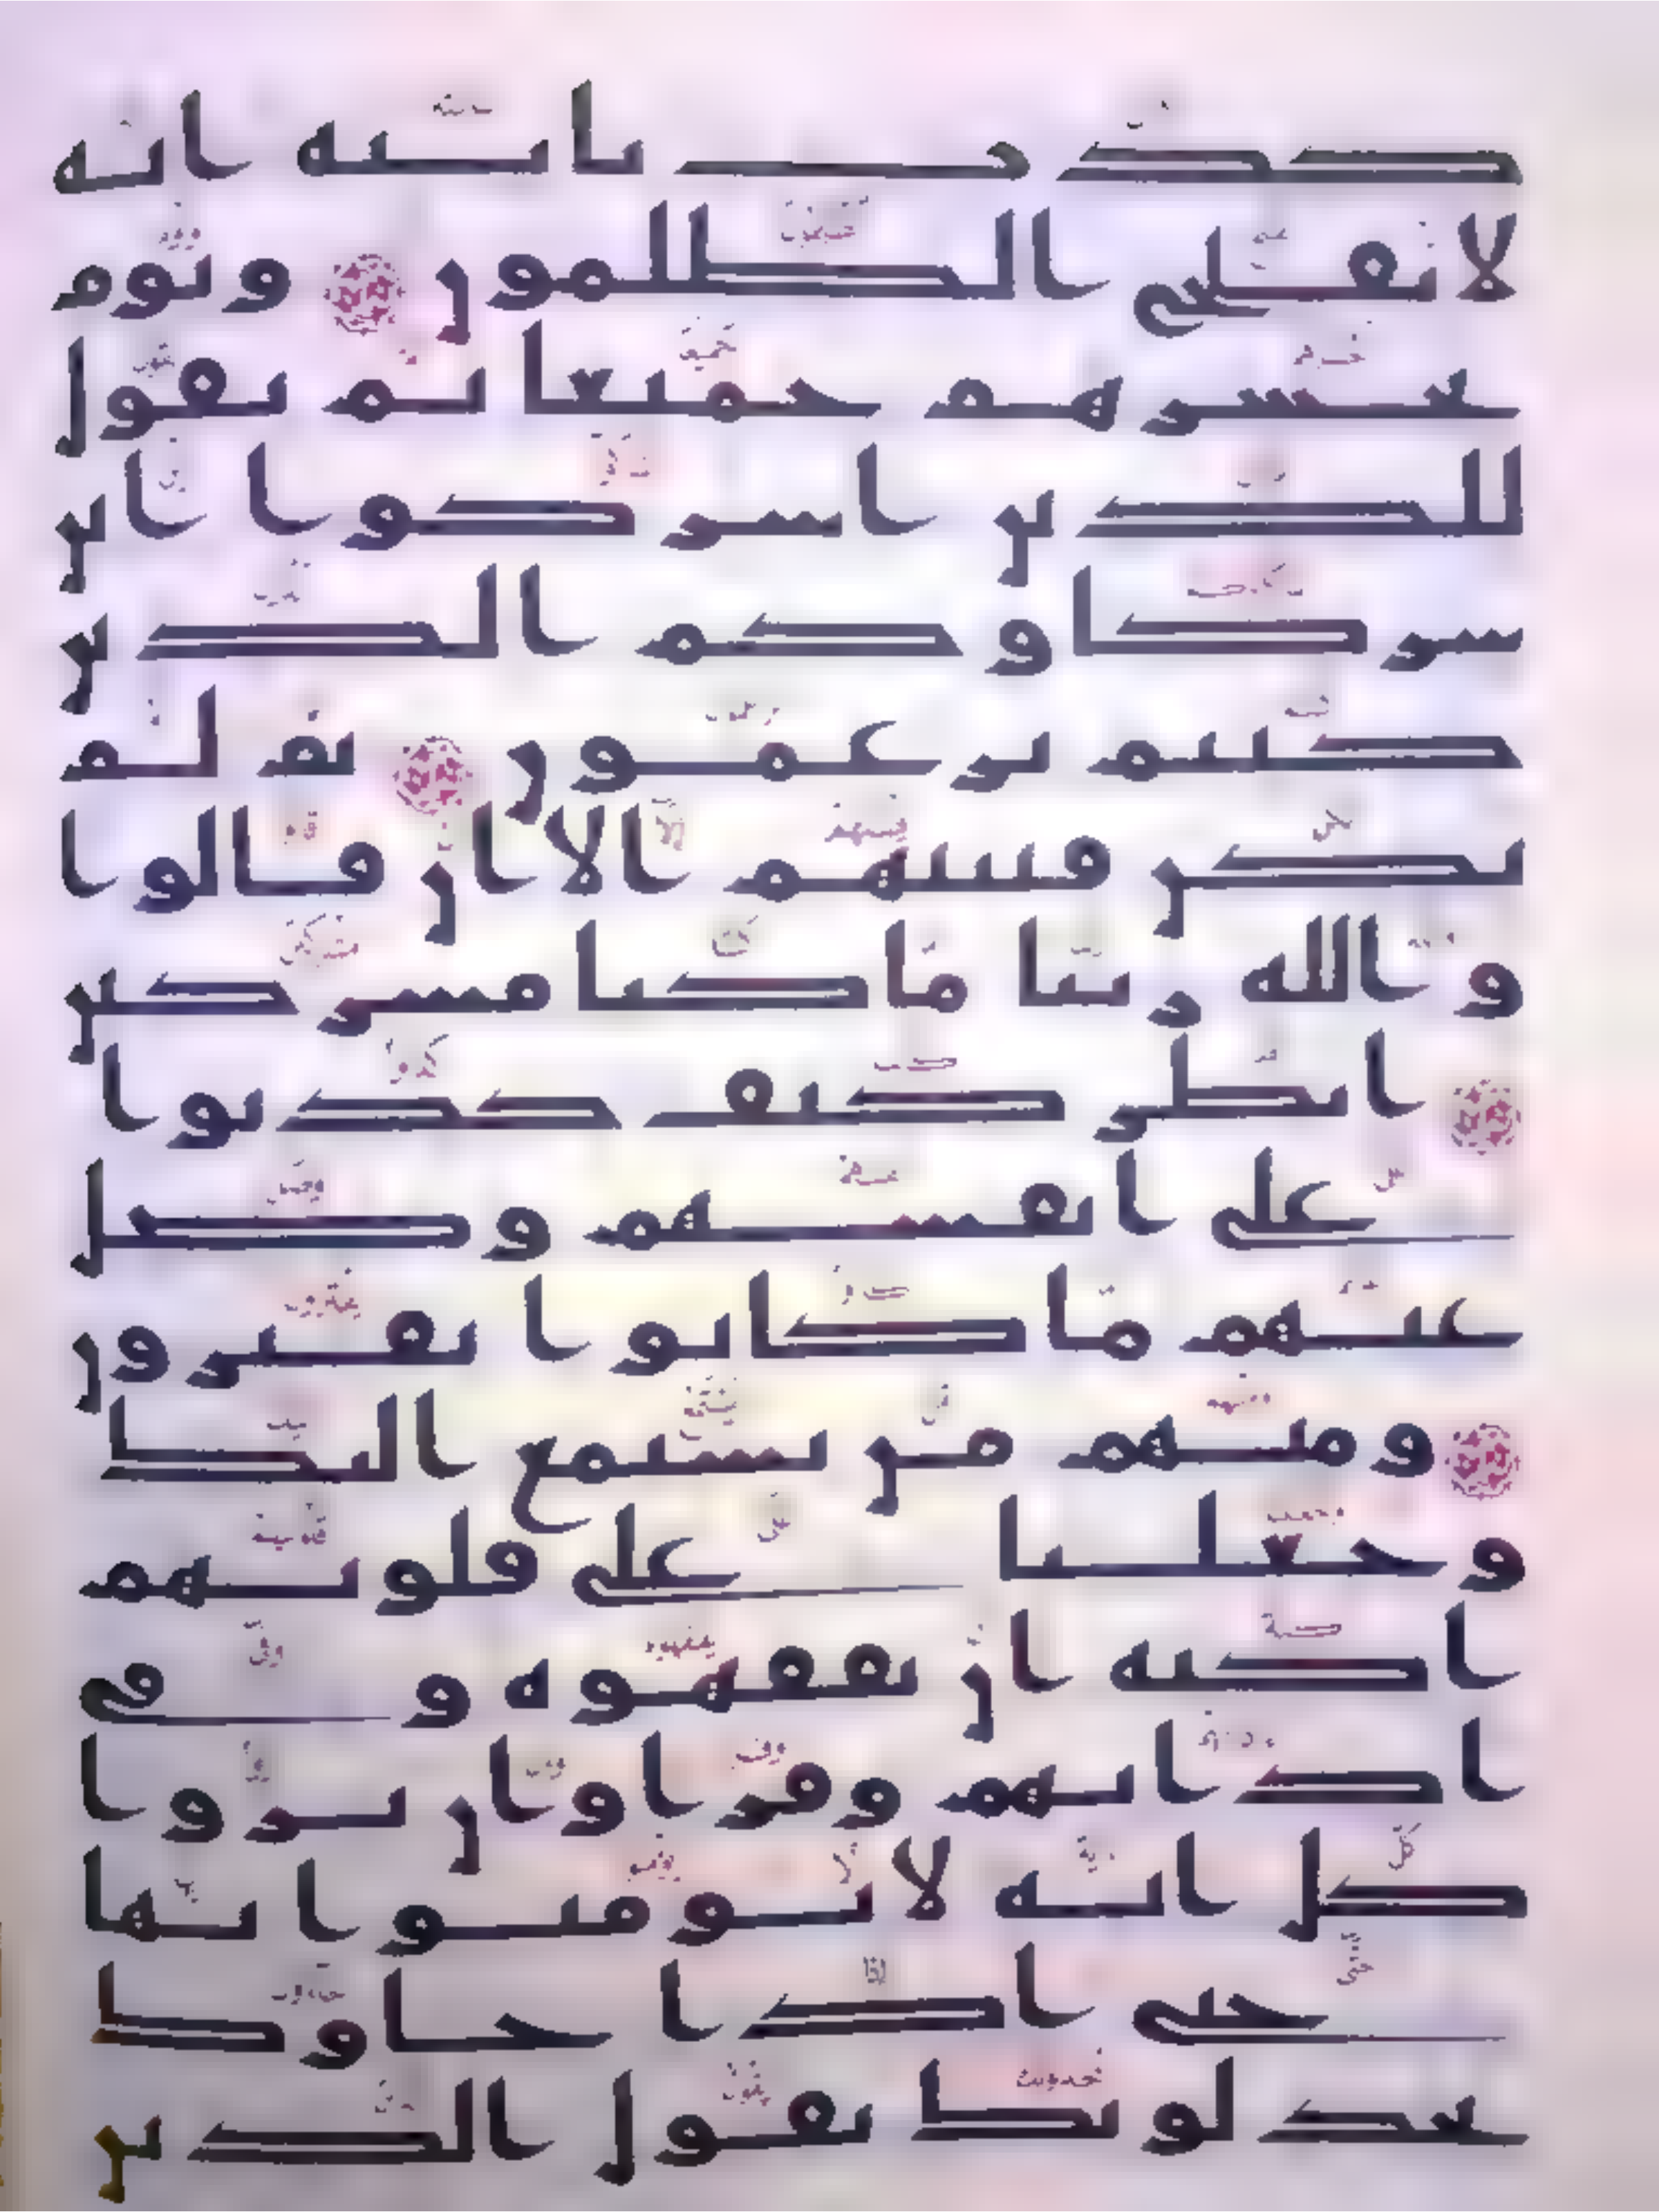 كذب بايته انه
لا يفلح الظلمون ويوم
نحشرهم جميعا ثم نقول
للذين اشركوا اين
شركاوكم الذين
كنتم تزعمون ثم لم
تكن فتنتهم الا ان قالوا
والله ربنا ما كنا مشركين
انظر كيف كذبوا
على انفسهم وضل
عنهم ما كانوا يفترون
ومنهم من يستمع اليك
وجعلنا على قلوبهم
اكنه ان يفقهوه وفي
اذانهم وقرا وان يروا
كل ايه لا يومنوا بها
حتى اذا جاوك
يجدلونك يقول الذين